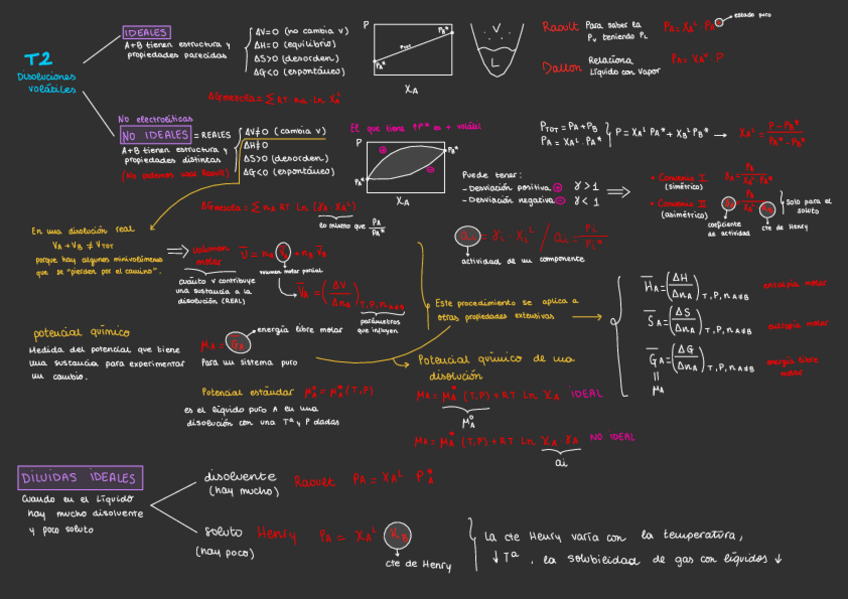 T2
Disoluciones
volátiles
IDEALES
A+B tienen estructura y
propiedades parecidas
ΔV=0 (no cambia v)
ΔH=0 (equilibrio)
ΔS>0 (desorden)
ΔG<0 (espontáneo)
P
PA*
PTOT
PB*
XA
V
L
Raoult Para saber la
Pv teniendo PL
PA = XA^L · PA*
estado puro
Dalton Relaciona
líquido con vapor
PA = XA^v · P
ΔGmezcla = Σ RT nA · Ln XA^L
No electrolíticas
NO IDEALES = REALES
A+B tienen estructura y
propiedades distintas
(No podemos usar Raoult)
ΔV≠0 (cambia v)
ΔH≠0
ΔS>0 (desorden)
ΔG<0 (espontáneo)
El que tiene ↑P* es + volátil
P
PA*
+
-
PB*
XA
PTOT = PA + PB
PA = XA^L · PA*
P = XA^L PA* + XB^L PB* → XA^L = (P − PB*) / (PA* − PB*)
Puede tener:
- Desviación positiva + γ > 1
- Desviación negativa - γ < 1
• Convenio I
(simétrico)
γA = PA / (XA^L · PA*)
• Convenio II
(asimétrico)
coeficiente
de actividad
cte de Henry
Solo para el
soluto
ΔGmezcla = Σ nA RT Ln (γA · XA^L)
lo mismo que PA / PA*
ai = γi · Xi^L / ai = Pi / Pi*
actividad de un componente
En una disolución real
VA + VB ≠ VTOT
porque hay algunos minivolúmenes
que se "pierden por el camino".
⇒ volumen
molar
V = nA V̄A + nB V̄B
volumen molar parcial
cuánto V contribuye
una sustancia a la
disolución (REAL)
V̄A = (ΔV / ΔnA) T, P, nA≠B
parámetros
que influyen
Este procedimiento se aplica a
otras propiedades extensivas
H̄A = (ΔH / ΔnA) T, P, nA≠B entalpía molar
S̄A = (ΔS / ΔnA) T, P, nA≠B entropía molar
ḠA = (ΔG / ΔnA) T, P, nA≠B energía libre
molar
=
μA
potencial químico
Medida del potencial que tiene
una sustancia para experimentar
un cambio.
μA = ḠA
energía libre molar
Para un sistema puro
Potencial químico de una
disolución
Potencial estándar μA° = μA* (T, P)
es el líquido puro A en una
disolución con una Tª y P dadas
μA = μA* (T, P) + RT Ln XA IDEAL
μA°
μA = μA* (T, P) + RT Ln XA γA NO IDEAL
ai
DILUIDAS IDEALES
Cuando en el líquido
hay mucho disolvente
y poco soluto
disolvente
(hay mucho)
Raoult PA = XA^L PA*
soluto
(hay poco)
Henry PA = XA^L KB
cte de Henry
La cte Henry varía con la temperatura,
↓ Tª, la solubilidad de gas con líquidos ↓